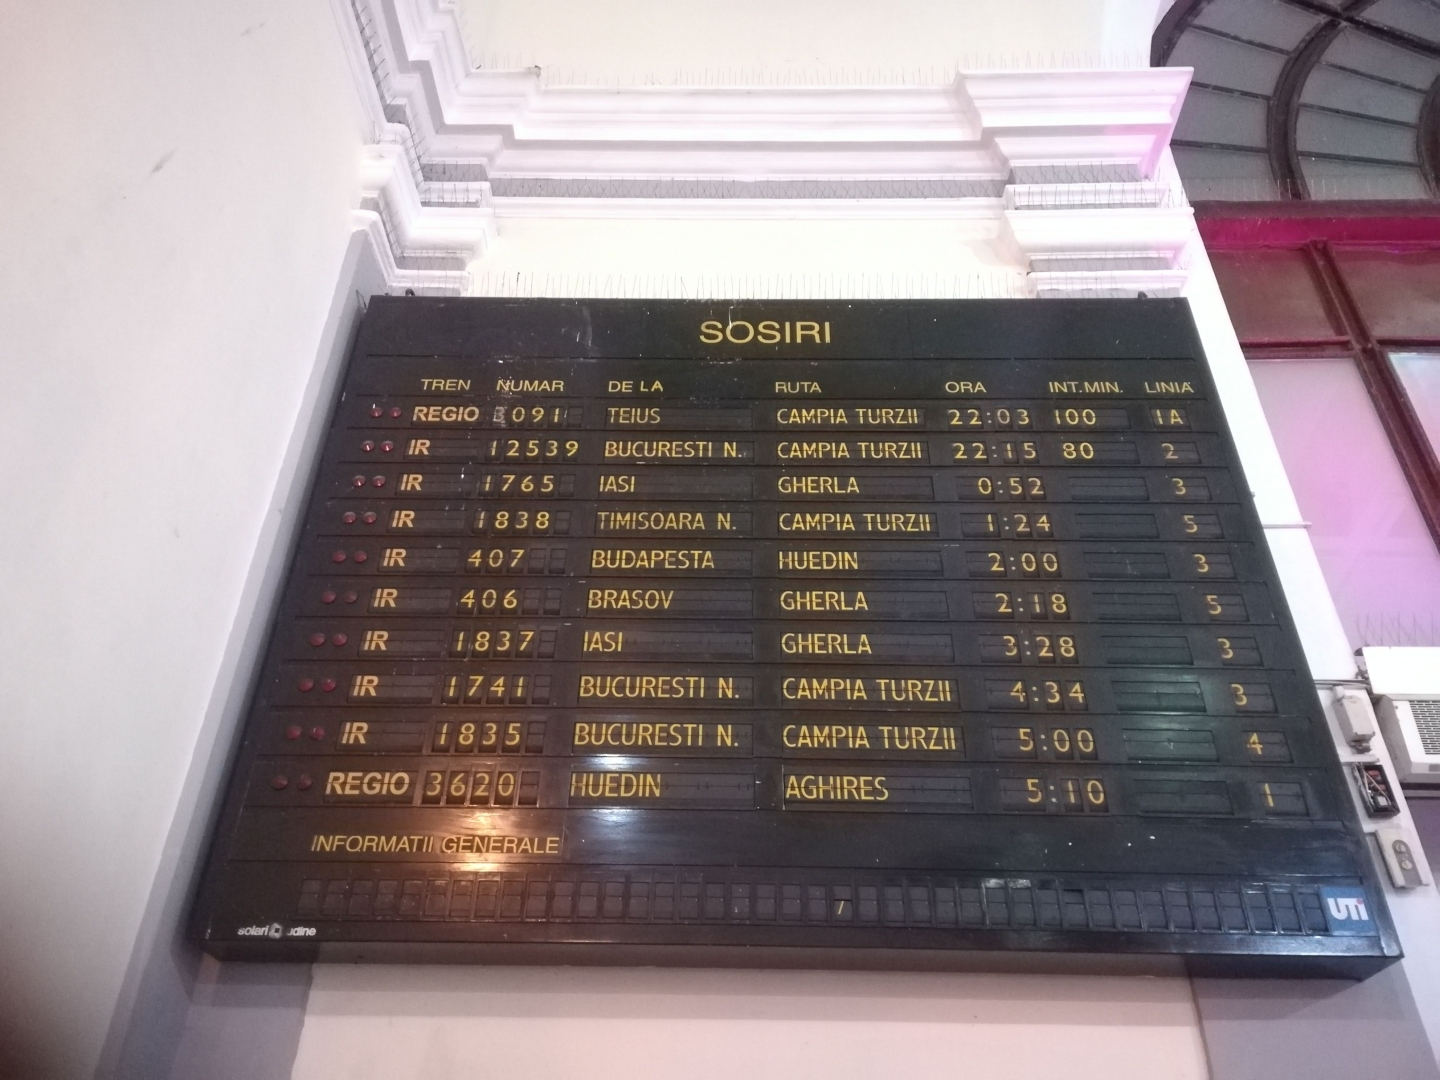 SOSIRI
TREN NUMAR DE LA RUTA ORA INT.MIN. LINIA
REGIO 3091 TEIUS CAMPIA TURZII 22:03 100 1A
IR 12539 BUCURESTI N. CAMPIA TURZII 22:15 80 2
IR 1765 IASI GHERLA 0:52 3
IR 1838 TIMISOARA N. CAMPIA TURZII 1:24 5
IR 407 BUDAPESTA HUEDIN 2:00 3
IR 406 BRASOV GHERLA 2:18 5
IR 1837 IASI GHERLA 3:28 3
IR 1741 BUCURESTI N. CAMPIA TURZII 4:34 3
IR 1835 BUCURESTI N. CAMPIA TURZII 5:00 4
REGIO 3620 HUEDIN AGHIRES 5:10 1
INFORMATII GENERALE
/
solari udine UTi